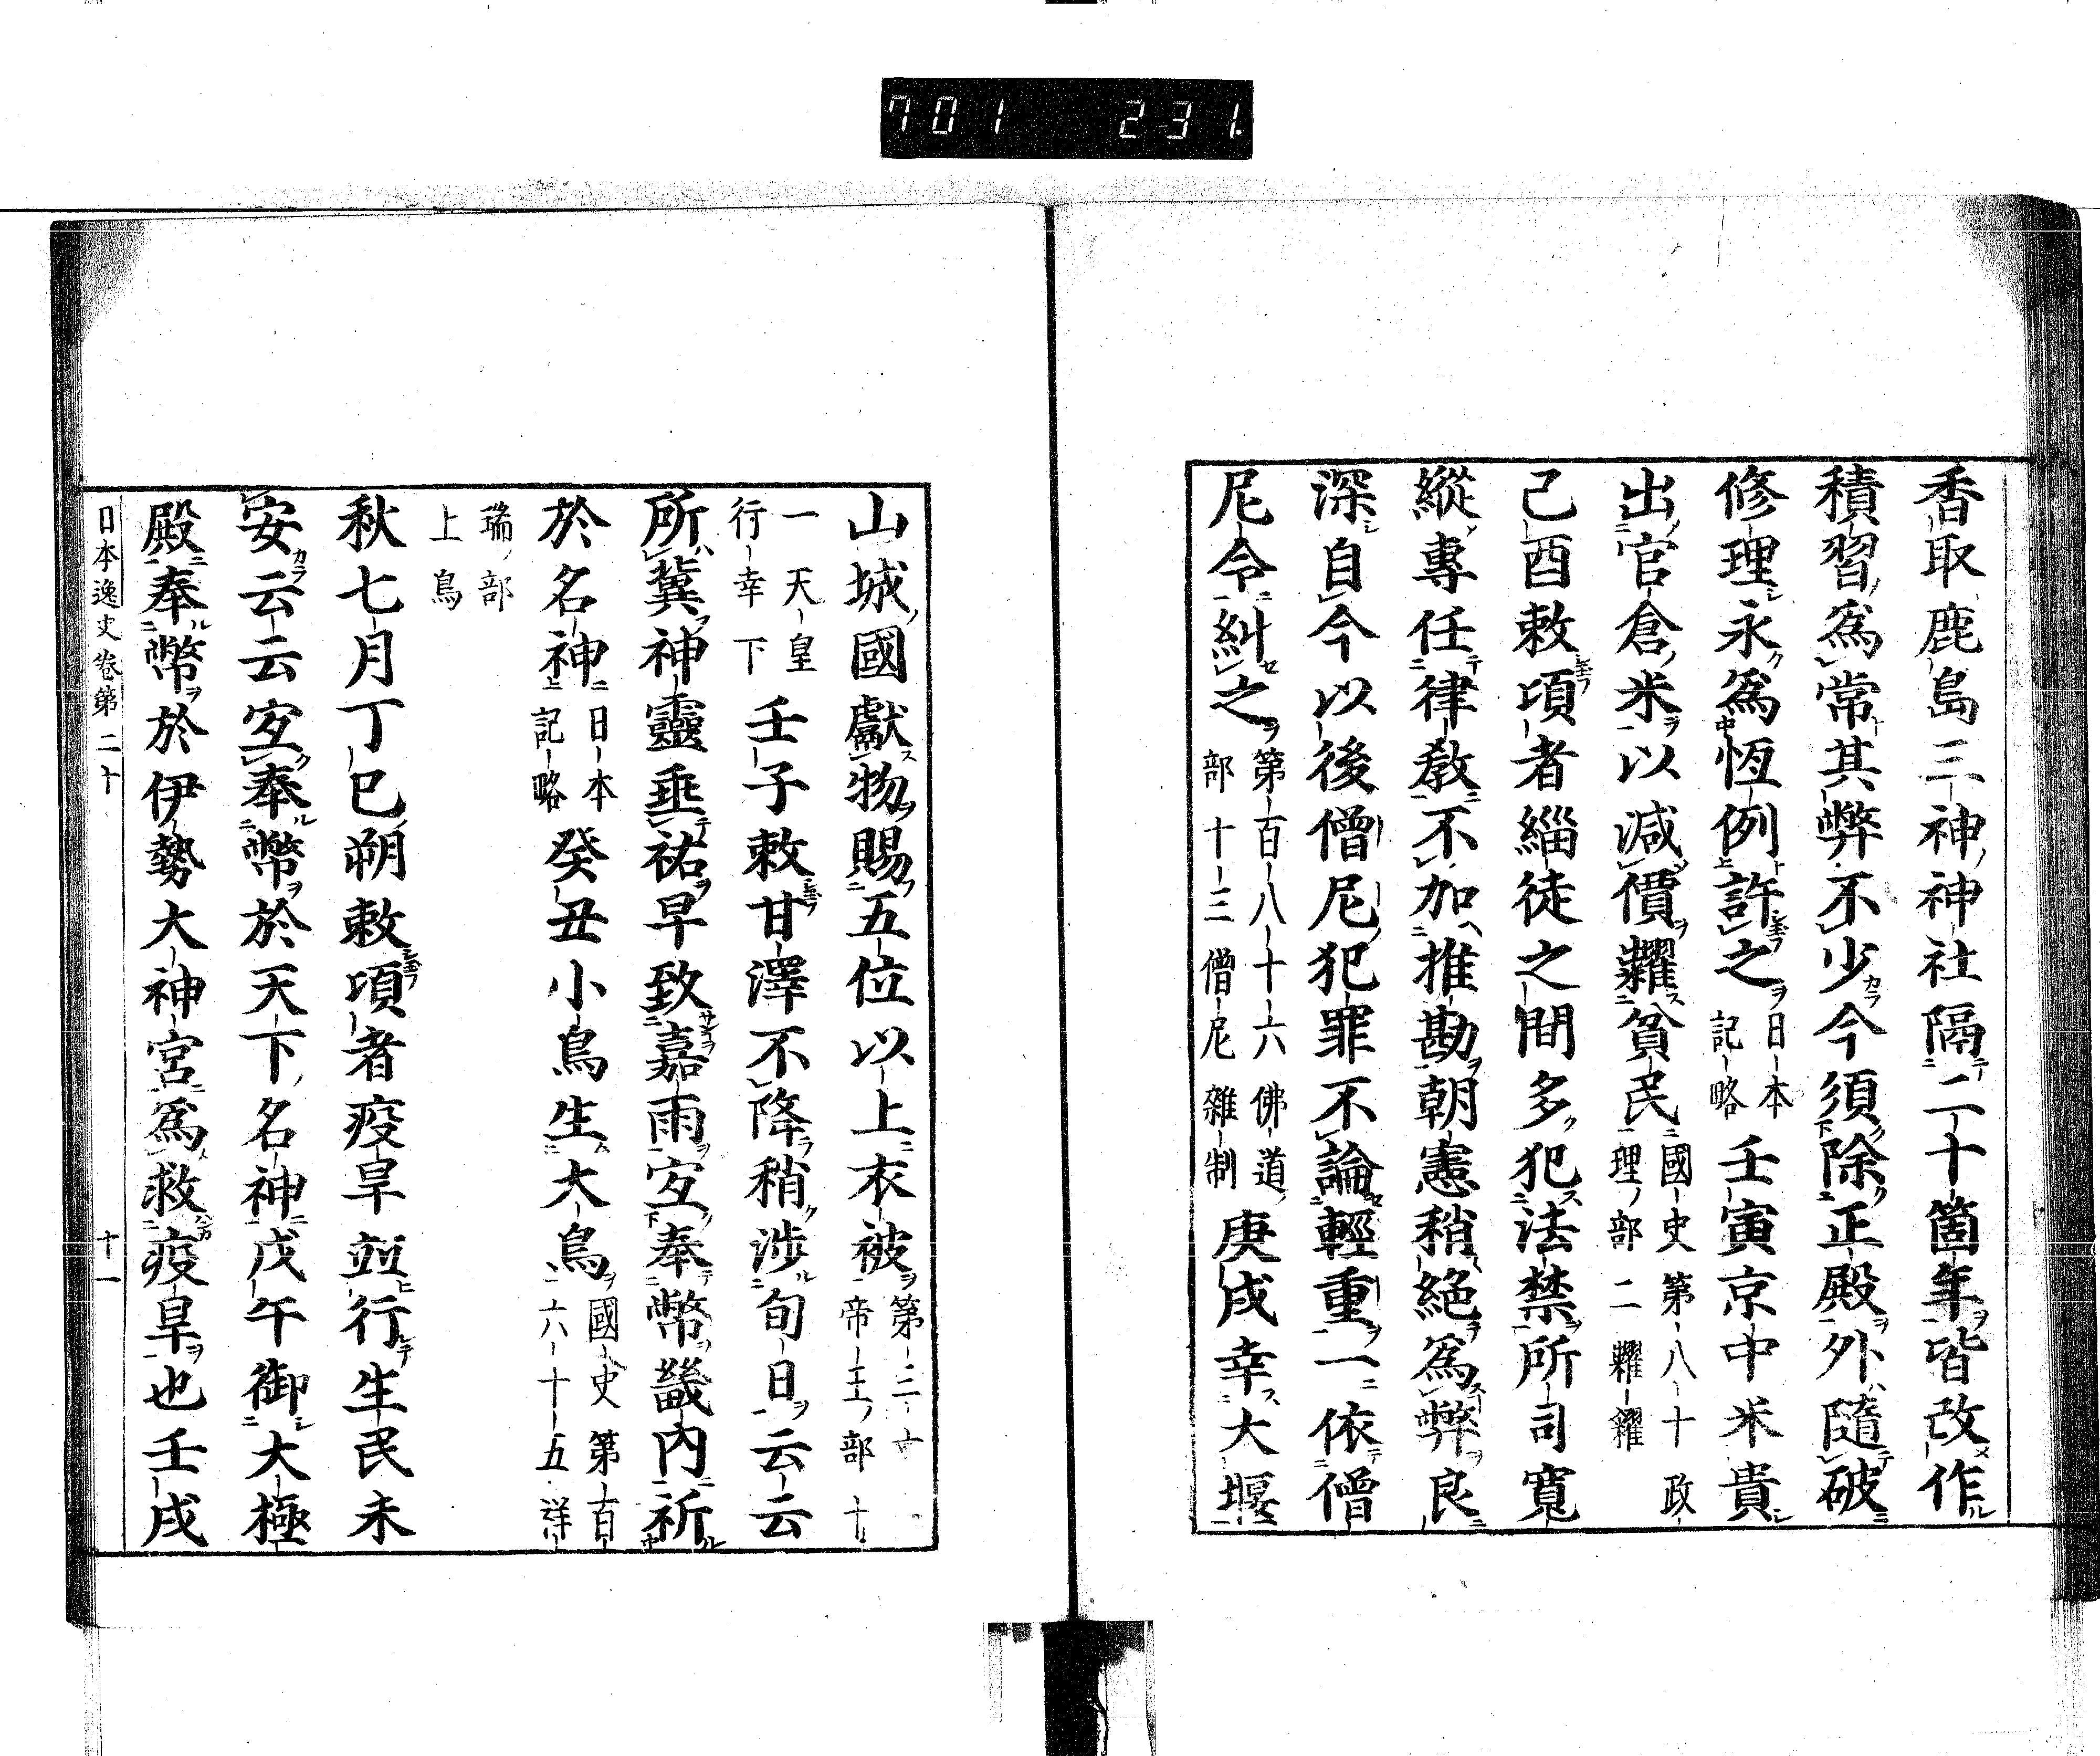 701 231
香取鹿島三神神社隔二十箇年皆改作
積習爲常其弊不少今須除正殿外隨破
修理永爲恆例許之日本記略壬寅京中米貴
出官倉米以減價糶貧民國史第八十政理部二糶糴
己酉敕頃者緇徒之間多犯法禁所司寬
縱專任律教不加推勘朝憲稍絕爲弊良
深自今以後僧尼犯罪不論輕重一依僧
尼令糾之第百八十六佛道部十三僧尼雜制庚戌幸大堰
山城國獻物賜五位以上衣被第三十帝王部十
一天皇行幸下壬子敕甘澤不降稍涉旬日云云
所冀神靈垂祐早致嘉雨宜奉幣畿內祈
於名神日本記略癸丑小鳥生大鳥國史第百六十五祥
瑞部上鳥
秋七月丁巳朔敕頃者疫旱竝行生民未
安云云宜奉幣於天下名神戊午御大極
殿奉幣於伊勢大神宮爲救疫旱也壬戌
日本逸史卷第二十 十一